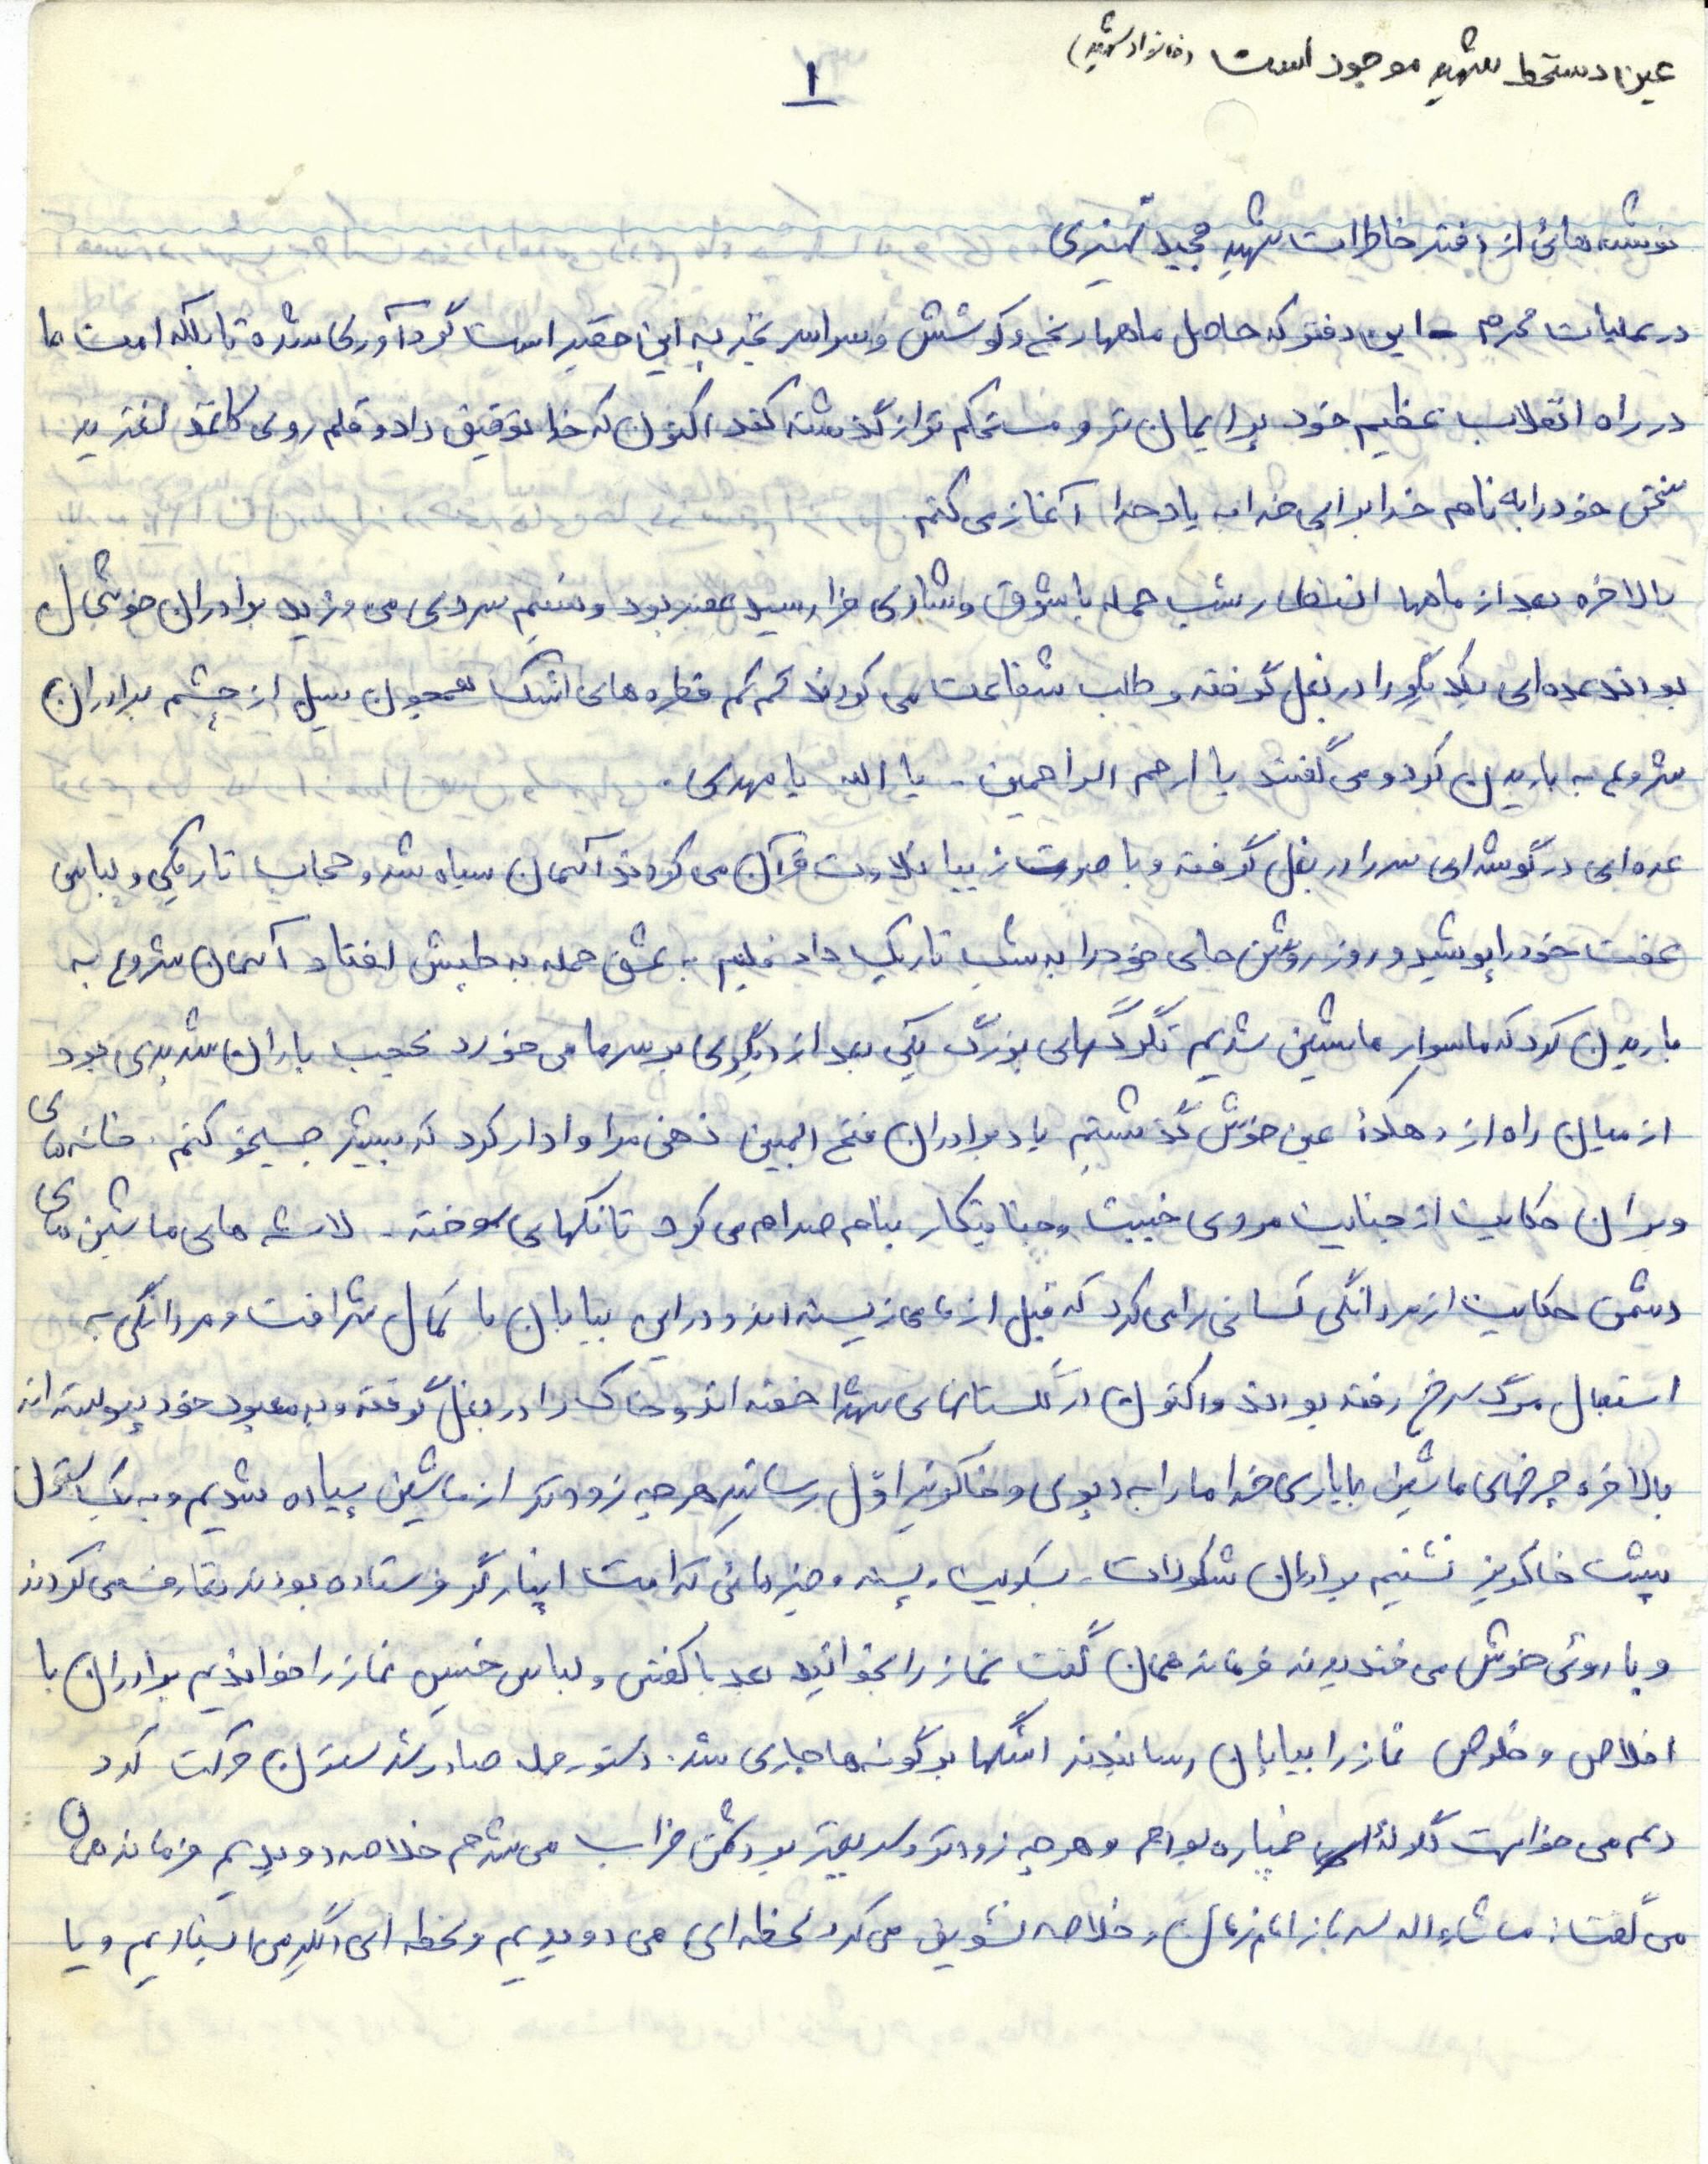 عین دستخط شهید موجود است (خانواده شهید)
۱
نوشته هائی از دفتر خاطرات شهید مجید
در عملیات محرم - این دفتر که حاصل ماهها رنج و کوشش و سراسر تجربه این حقیر است گردآوری شده تا بلکه امت ما
در راه انقلاب عظیم خود پر ایمان تر و مستحکم تر از گذشته کند اکنون که خدا توفیق داد و قلم روی کاغذ لغزید
سخن خود را به نام خدا برای خدا به یاد خدا آغاز می کنم
بالاخره بعد از ماهها انتظار شب حمله با شوق و شادی فرا رسید عصر بود و نسیم سردی می وزید برادران خوشحال
بودند عده ای یکدیگر را در بغل گرفته و طلب شفاعت می کردند کم کم قطره های اشک همچون سیل از چشم برادران
شروع به باریدن کرد و می گفتند یا ارحم الراحمین - یا الله یا مهدی.
عده ای در گوشه ای سر را در بغل گرفته و با صوت زیبا تلاوت قرآن می کردند آسمان سیاه شد و حجاب تاریکی و لباس
عفت خود را پوشید و روز روشن جای خود را به شب تاریک داد قلبم به عشق حمله به طپش افتاد آسمان شروع به
باریدن کرد که ما سوار ماشین شدیم تگرگهای بزرگ یکی بعد از دیگری بر سر ما می خورد عجیب باران شدیدی بود
از میان راه از دهکدهٔ عین خوش گذشتیم یاد برادران فتح المبین ذهن مرا وادار کرد که بیشتر جستجو کنم. خانه های
ویران حکایت از جنایت مردی خبیث و جنایتکار بنام صدام می کرد تانکهای سوخته - لاشه های ماشین های
دشمن حکایت از مردانگی کسانی را می کرد که قبل از ما می زیسته اند و در این بیابان با کمال شرافت و مردانگی به
استقبال مرگ سرخ رفته بودند و اکنون در گلستانهای شهدا خفته اند و خاک را در بغل گرفته و به معبود خود پیوسته اند
بالاخره چرخهای ماشین با یاری خدا ما را به دپوی و خاکریز اوّل رسانید هر چه زودتر از ماشین پیاده شدیم و به یک ستون
پشت خاکریز نشستیم برادران شکولات، بسکویت، پسته و چیزهائی که امت ایثارگر فرستاده بودند تعارف می کردند
و با روئی خوش می خندیدند فرمانده مان گفت نماز را بخوانید بعد با کفش و لباس خیس نماز را خواندیم برادران با
اخلاص و خلوص نماز را بپایان رساندند اشکها بر گونه ها جاری شد. دستور حمله صادر شد ستون حرکت کرد
دلم می خواست گلولهٔ خمپاره بودم و هر چه زودتر و سریعتر بر دشمن خراب می شدم خلاصه دویدیم فرمانده مان
می گفت: ماشاءالله سرباز امام زمان، خلاصه تشویق می کرد لحظه ای می دویدیم و لحظه ای دیگر می ایستادیم و یا